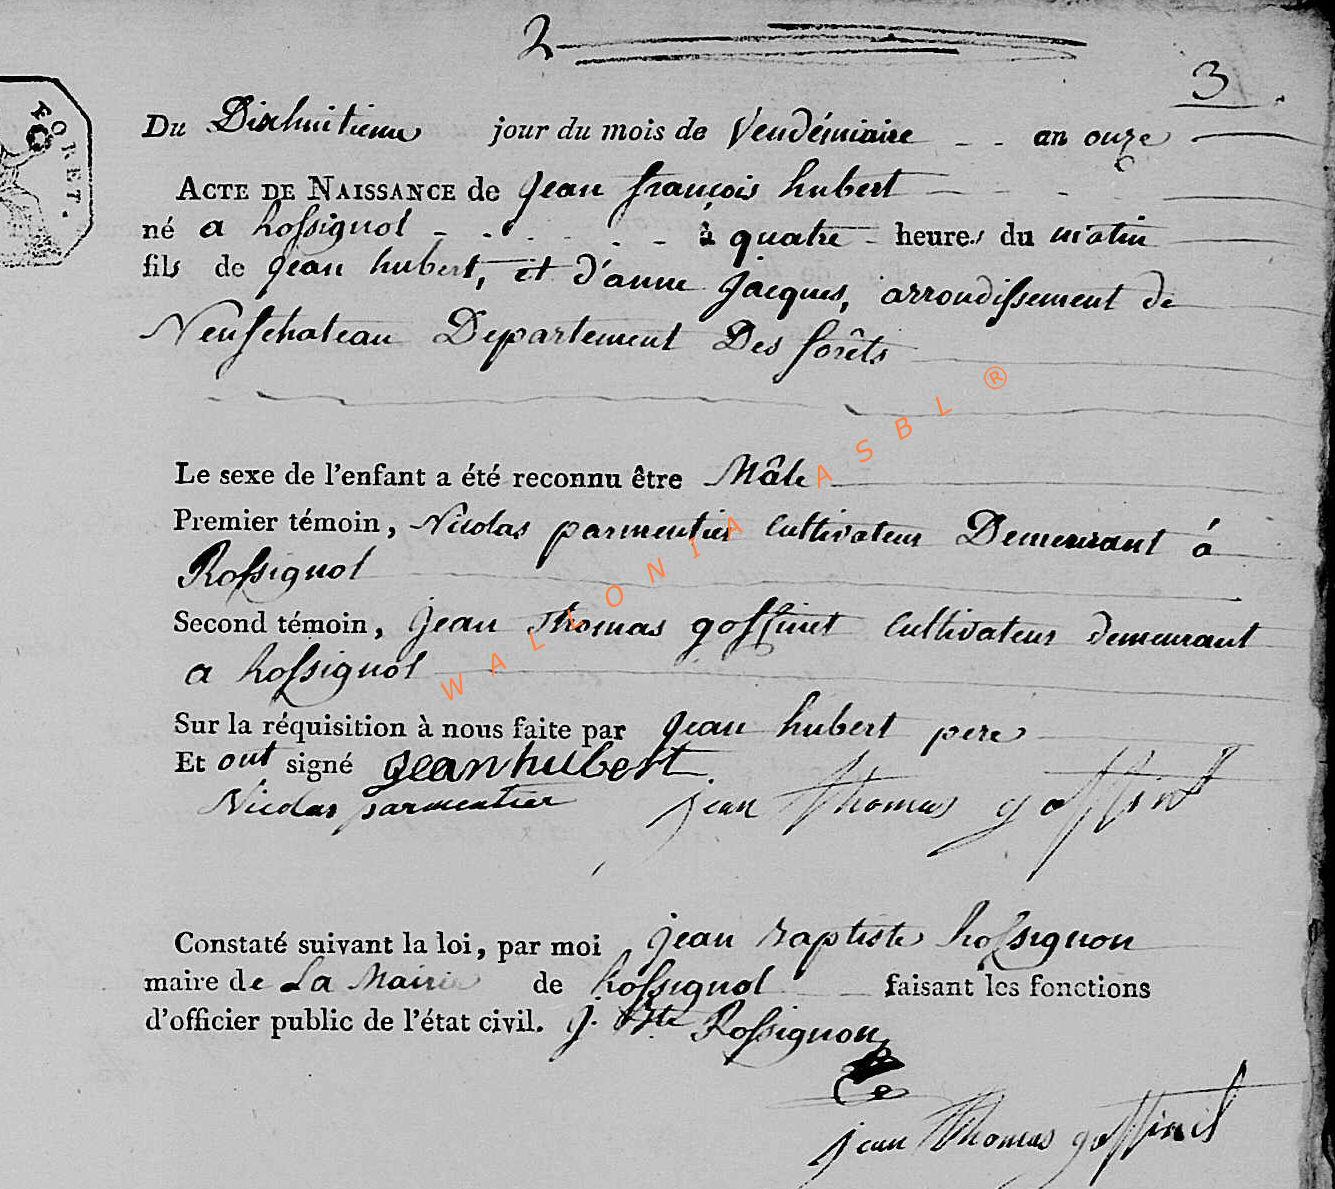 2
3
FORET.
Du Dixhuitieme jour du mois de Vendémiaire an onze
ACTE DE NAISSANCE de Jean françois hubert
né a Rossignol à quatre heures du matin
fils de jean hubert, et d'anne jacques, arrondissement de
Neufchateau Departement Des forêts
Le sexe de l'enfant a été reconnu être Mâle
Premier témoin, Nicolas parmentier cultivateur Demeurant à
Rossignol
Second témoin, jean thomas goffinet cultivateur demeurant
a Rossignol
Sur la réquisition à nous faite par jean hubert pere
Et ont signé jean hubert
Nicolas parmentier jean thomas goffinet
Constaté suivant la loi, par moi jean baptiste Rossignon
maire de La Mairie de Rossignol faisant les fonctions
d'officier public de l'état civil. J. Bte Rossignon
jean thomas goffinet
WALLONIA ASBL ®